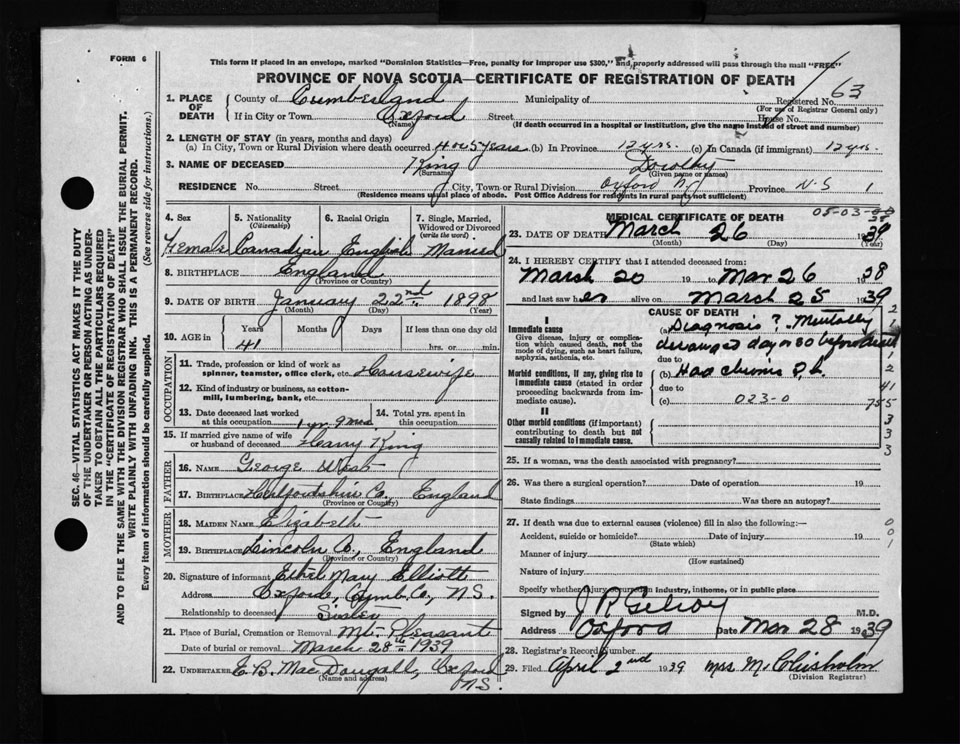 FORM 6
This form if placed in an envelope, marked "Dominion Statistics—Free, penalty for improper use $300," and properly addressed will pass through the mail "FREE"
PROVINCE OF NOVA SCOTIA—CERTIFICATE OF REGISTRATION OF DEATH
SEC. 46—VITAL STATISTICS ACT MAKES IT THE DUTY
OF THE UNDERTAKER OR PERSON ACTING AS UNDER-
TAKER TO OBTAIN ALL THE PARTICULARS REQUIRED
IN THE "CERTIFICATE OF REGISTRATION OF DEATH"
AND TO FILE THE SAME WITH THE DIVISION REGISTRAR WHO SHALL ISSUE THE BURIAL PERMIT.
WRITE PLAINLY WITH UNFADING INK. THIS IS A PERMANENT RECORD.
Every item of information should be carefully supplied. (See reverse side for instructions.)
1. PLACE OF DEATH County of Cumberland Municipality of Registered No. 63
(For use of Registrar General only)
If in City or Town Oxford Street House No.
(Name) (If death occurred in a hospital or institution, give the name instead of street and number)
2. LENGTH OF STAY (in years, months and days)
(a) In City, Town or Rural Division where death occurred 4 or 5 years (b) In Province 12 yrs. (c) In Canada (if immigrant) 12 yrs.
3. NAME OF DECEASED King Dorothy
(Surname) (Given name or names)
RESIDENCE No. Street City, Town or Rural Division Oxford Province N.S 1
(Residence means usual place of abode. Post Office Address for residents in rural parts not sufficient)
4. Sex Female
5. Nationality (Citizenship) Canadian
6. Racial Origin English
7. Single, Married, Widowed or Divorced (write the word) Married
8. BIRTHPLACE England
(Province or Country)
9. DATE OF BIRTH January 22nd 1898
(Month) (Day) (Year)
10. AGE in Years 41 Months Days If less than one day old hrs. or min.
OCCUPATION
11. Trade, profession or kind of work as spinner, teamster, office clerk, etc. Housewife
12. Kind of industry or business, as cotton-mill, lumbering, bank, etc.
13. Date deceased last worked at this occupation 1 yr. 9 mos
14. Total yrs. spent in this occupation
15. If married give name of wife or husband of deceased Harry King
FATHER
16. NAME George
17. BIRTHPLACE Hertfordshire Co. England
(Province or Country)
MOTHER
18. MAIDEN NAME Elizabeth
19. BIRTHPLACE Lincoln Co., England
(Province or Country)
20. Signature of informant Ethel Mary Elliott
Address Oxford, Cumb. Co., N.S.
Relationship to deceased Sister
21. Place of Burial, Cremation or Removal Mt. Pleasant
Date of burial or removal March 28th 1939
22. UNDERTAKER E. B. MacDougall, Oxford N.S.
(Name and address)
MEDICAL CERTIFICATE OF DEATH
23. DATE OF DEATH March 26 1939
(Month) (Day) (Year)
24. I HEREBY CERTIFY that I attended deceased from:
March 20 19 to Mar 26 19
and last saw her alive on March 25 1939
CAUSE OF DEATH
I
Immediate cause
Give disease, injury or complication which caused death, not the mode of dying, such as heart failure, asphyxia, asthenia, etc.
(a) Diagnosis? Mentally
deranged day or so before death
due to
Morbid conditions, if any, giving rise to immediate cause (stated in order proceeding backwards from immediate cause).
(b) Had chronic
due to
(c) 023-0
II
Other morbid conditions (if important) contributing to death but not causally related to immediate cause.
25. If a woman, was the death associated with pregnancy?
26. Was there a surgical operation? Date of operation 19
State findings Was there an autopsy?
27. If death was due to external causes (violence) fill in also the following:—
Accident, suicide or homicide? Date of injury 19
(State which)
Manner of injury
(How sustained)
Nature of injury
Specify whether injury occurred in industry, in home, or in public place
Signed by M.D.
Address Oxford Date Mar 28 1939
28. Registrar's Record Number
29. Filed April 2nd 1939 Mrs M. Chisholm
(Division Registrar)